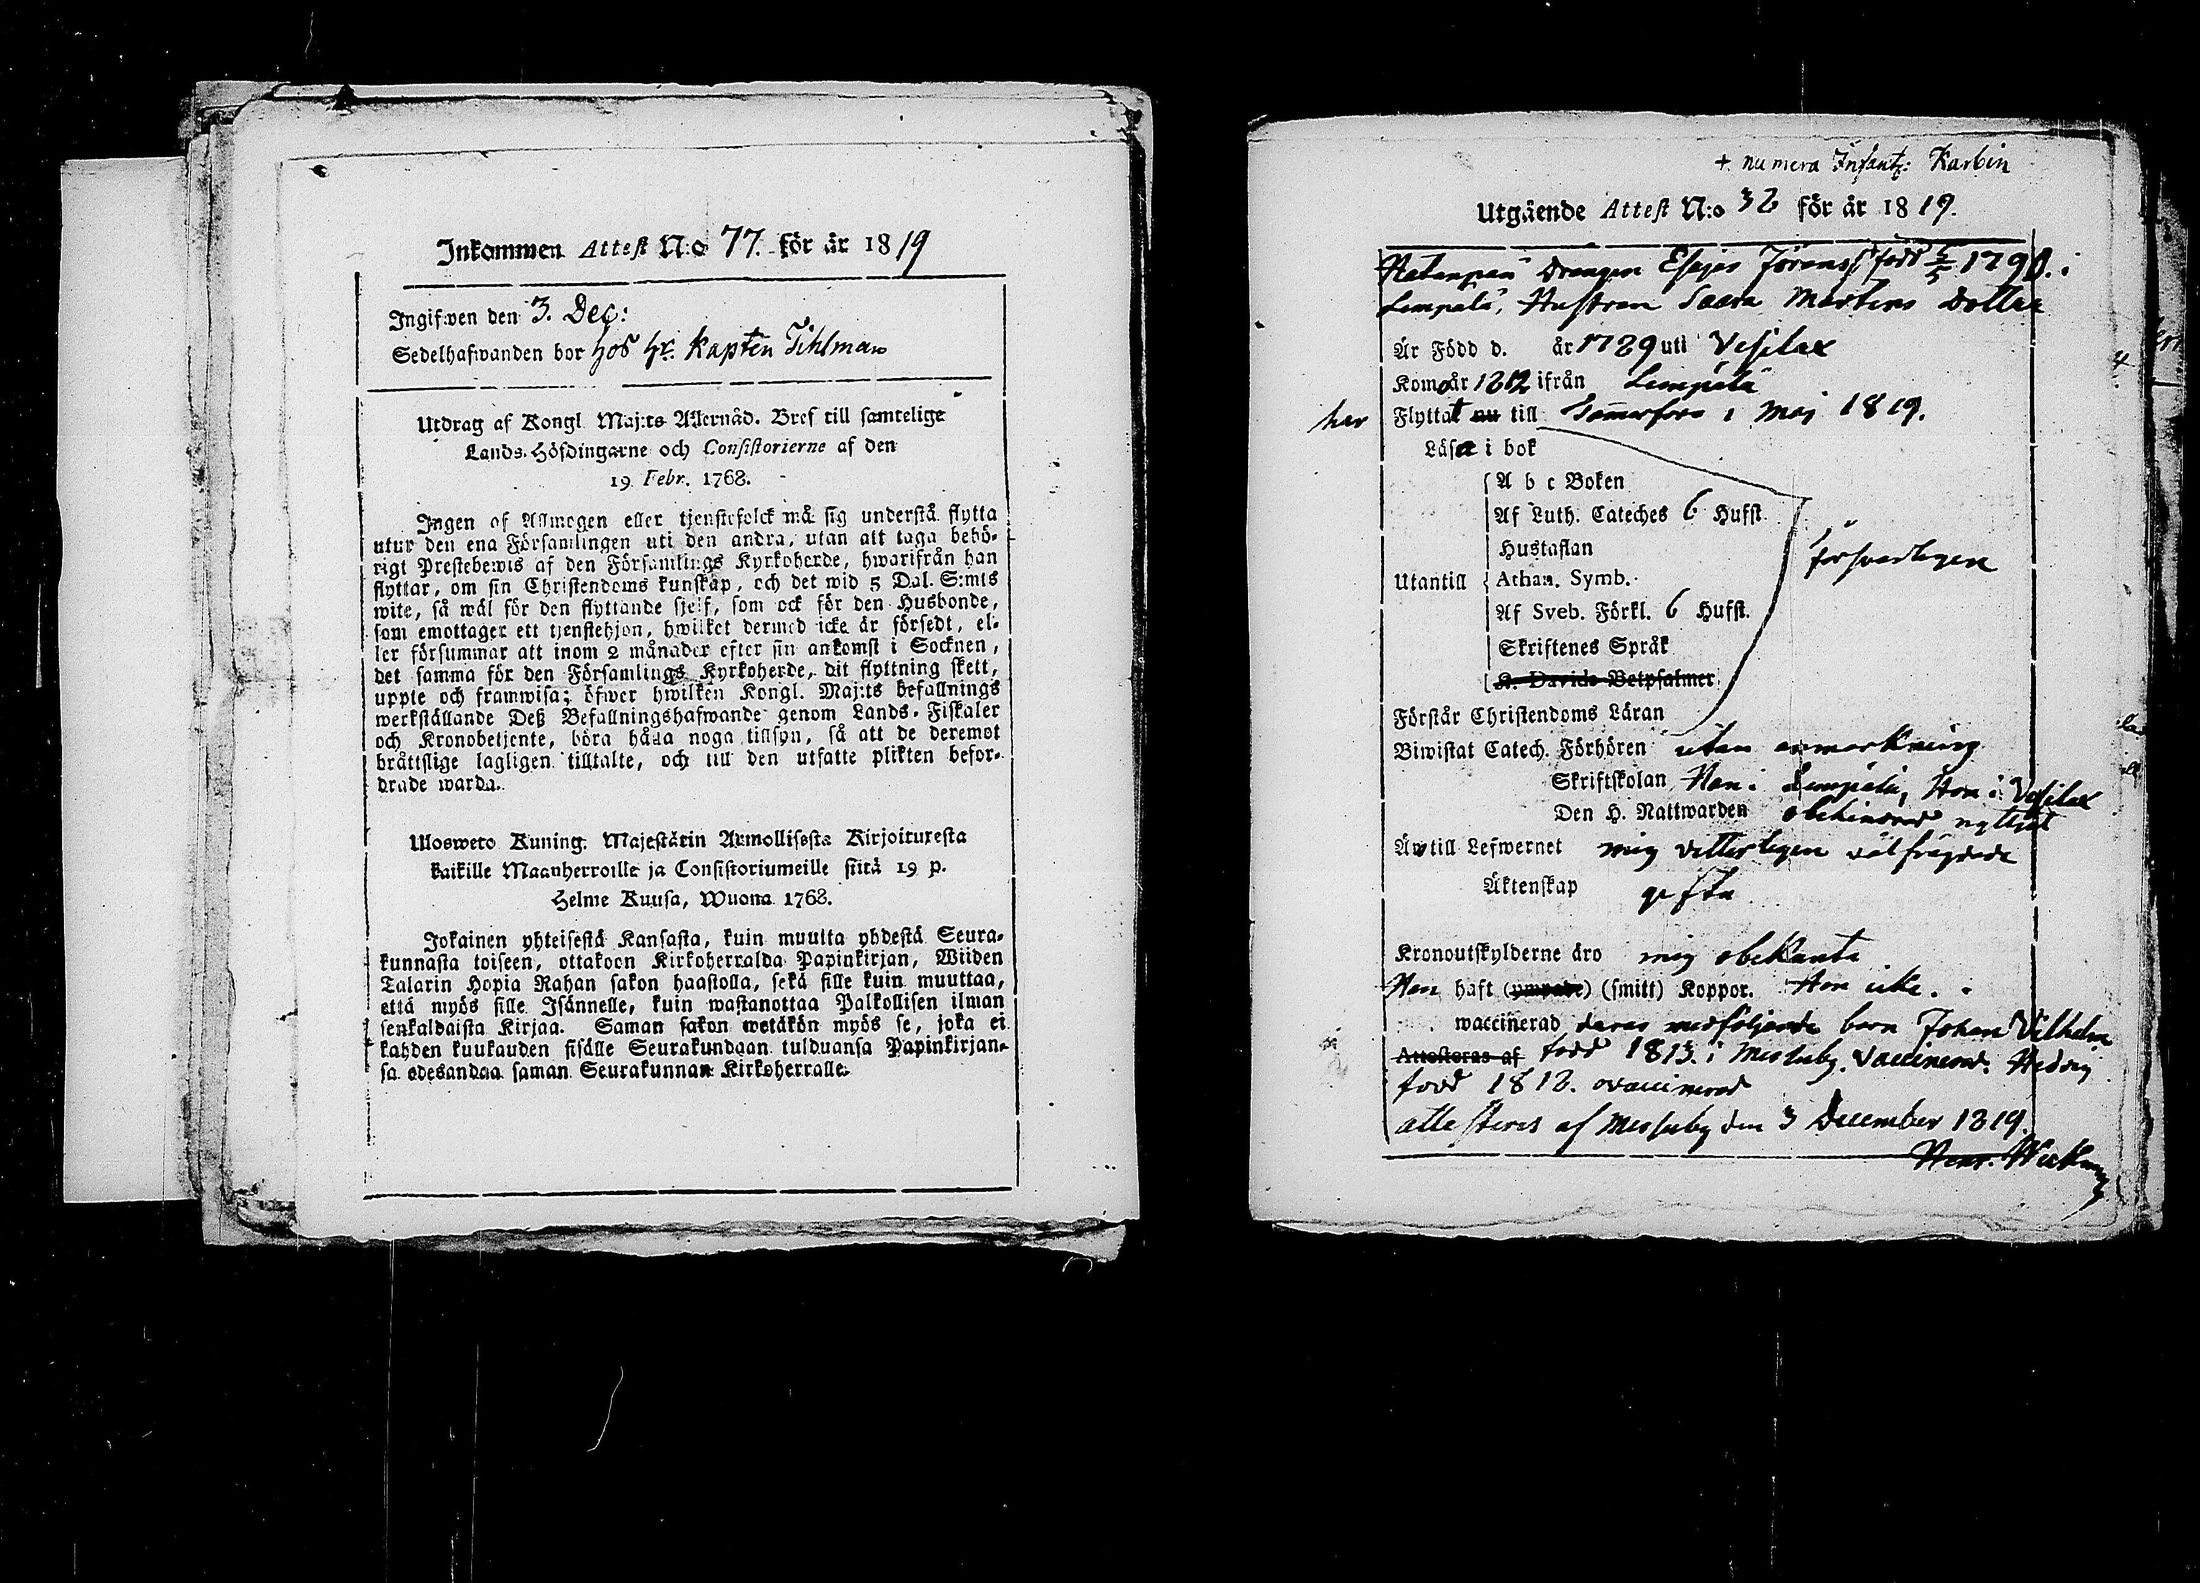 Inkommen Attest N:o 77. för år 1819
Ingifwen den 3. Dec:
Sedelhafwanden bor hos Hr. Kapten Tihlman
Utdrag af Kongl. Maj:ts Allernåd. Bref till samtelige
Lands-Höfdingarne och Consistorierne af den
19 Febr. 1768.
Ingen af Allmogen eller tjenstefolck må sig understå flytta
utur den ena Församlingen uti den andra, utan att taga behö-
rigt Prestebewis af den Församlings Kyrkoherde, hwarifrån han
flyttar, om sin Christendoms kunskap, och det wid 5 Dal. S:mts
wite, så wäl för den flyttande sjelf, som ock för den Husbonde,
som emottager ett tjenstehjon, hwilket dermed icke är försedt, el-
ler försummar att inom 2 månader efter sin ankomst i Socknen,
det samma för den Församlings Kyrkoherde, dit flyttning skett,
uppte och framwisa; öfwer hwilken Kongl. Maj:ts befallnings
werkställande Deß Befallningshafwande genom Lands-Fiskaler
och Kronobetjente, böra hålla noga tillsyn, så att de deremot
bråttslige lagligen tilltalte, och till den utsatte plikten befor-
drade warda.
Ulosweto Kuning. Majestätin Armollisesta Kirjoituxesta
kaikille Maanherroille ja Consistoriumeille siitä 19 p.
Helme Kuusa, Wuonna 1768.
Jokainen yhteisestä Kansasta, kuin muutta yhdestä Seura-
kunnasta toiseen, ottakoon Kirkoherralda Papinkirjan, Wiiden
Talarin Hopia Rahan sakon haastolla, sekä sille kuin muuttaa,
että myös sille Isännelle, kuin wastanottaa Palkollisen ilman
senkaldaista Kirjaa. Saman sakon wetäkön myös se, joka ei
kahden kuukauden sisälle Seurakundaan tulduansa Papinkirjan-
sa edesandaa saman Seurakunnan Kirkoherralle.
+ numera Infant: Karbin
Utgående Attest N:o 32 för år 1819.
Drengen Esajas Jöranss. född 5/5 1790. i
Lempälä, Hustrun Saara Martins Dotter
Är Född d. år 1789 uti Vesilax
Kom år 1812 ifrån Lempälä
har Flyttat nu till Tammerfors i Maj 1819.
Läsa i bok
A b c Boken
Af Luth. Cateches 6 Hufst.
Hustaflan
försvarligen
Utantill Athan. Symb.
Af Sveb. Förkl. 6 Hufst.
Skriftenes Språk
K. Davids Botpsalmer
Förstår Christendoms Läran
Biwistat Catech. Förhören utan anmärkning
Skriftskolan Han i Lempälä, Hon i Vesilax
Den H. Nattwarden obehindrad nyttjat
Äro till Lefwernet mig vetterligen välfrägdade
Äktenskap gifta
Kronoutskylderne äro mig obekanta
Han haft (ympade) (smitt) Koppor. Hon icke.
waccinerad deras medföljande barn Johan Vilhelm
Attesteras af född 1815. i Messuby. Vaccinerad. Hedvig
född 1818. ovaccinerad
attesteres af Messuby den 3 December 1819.
Henr. Wickman